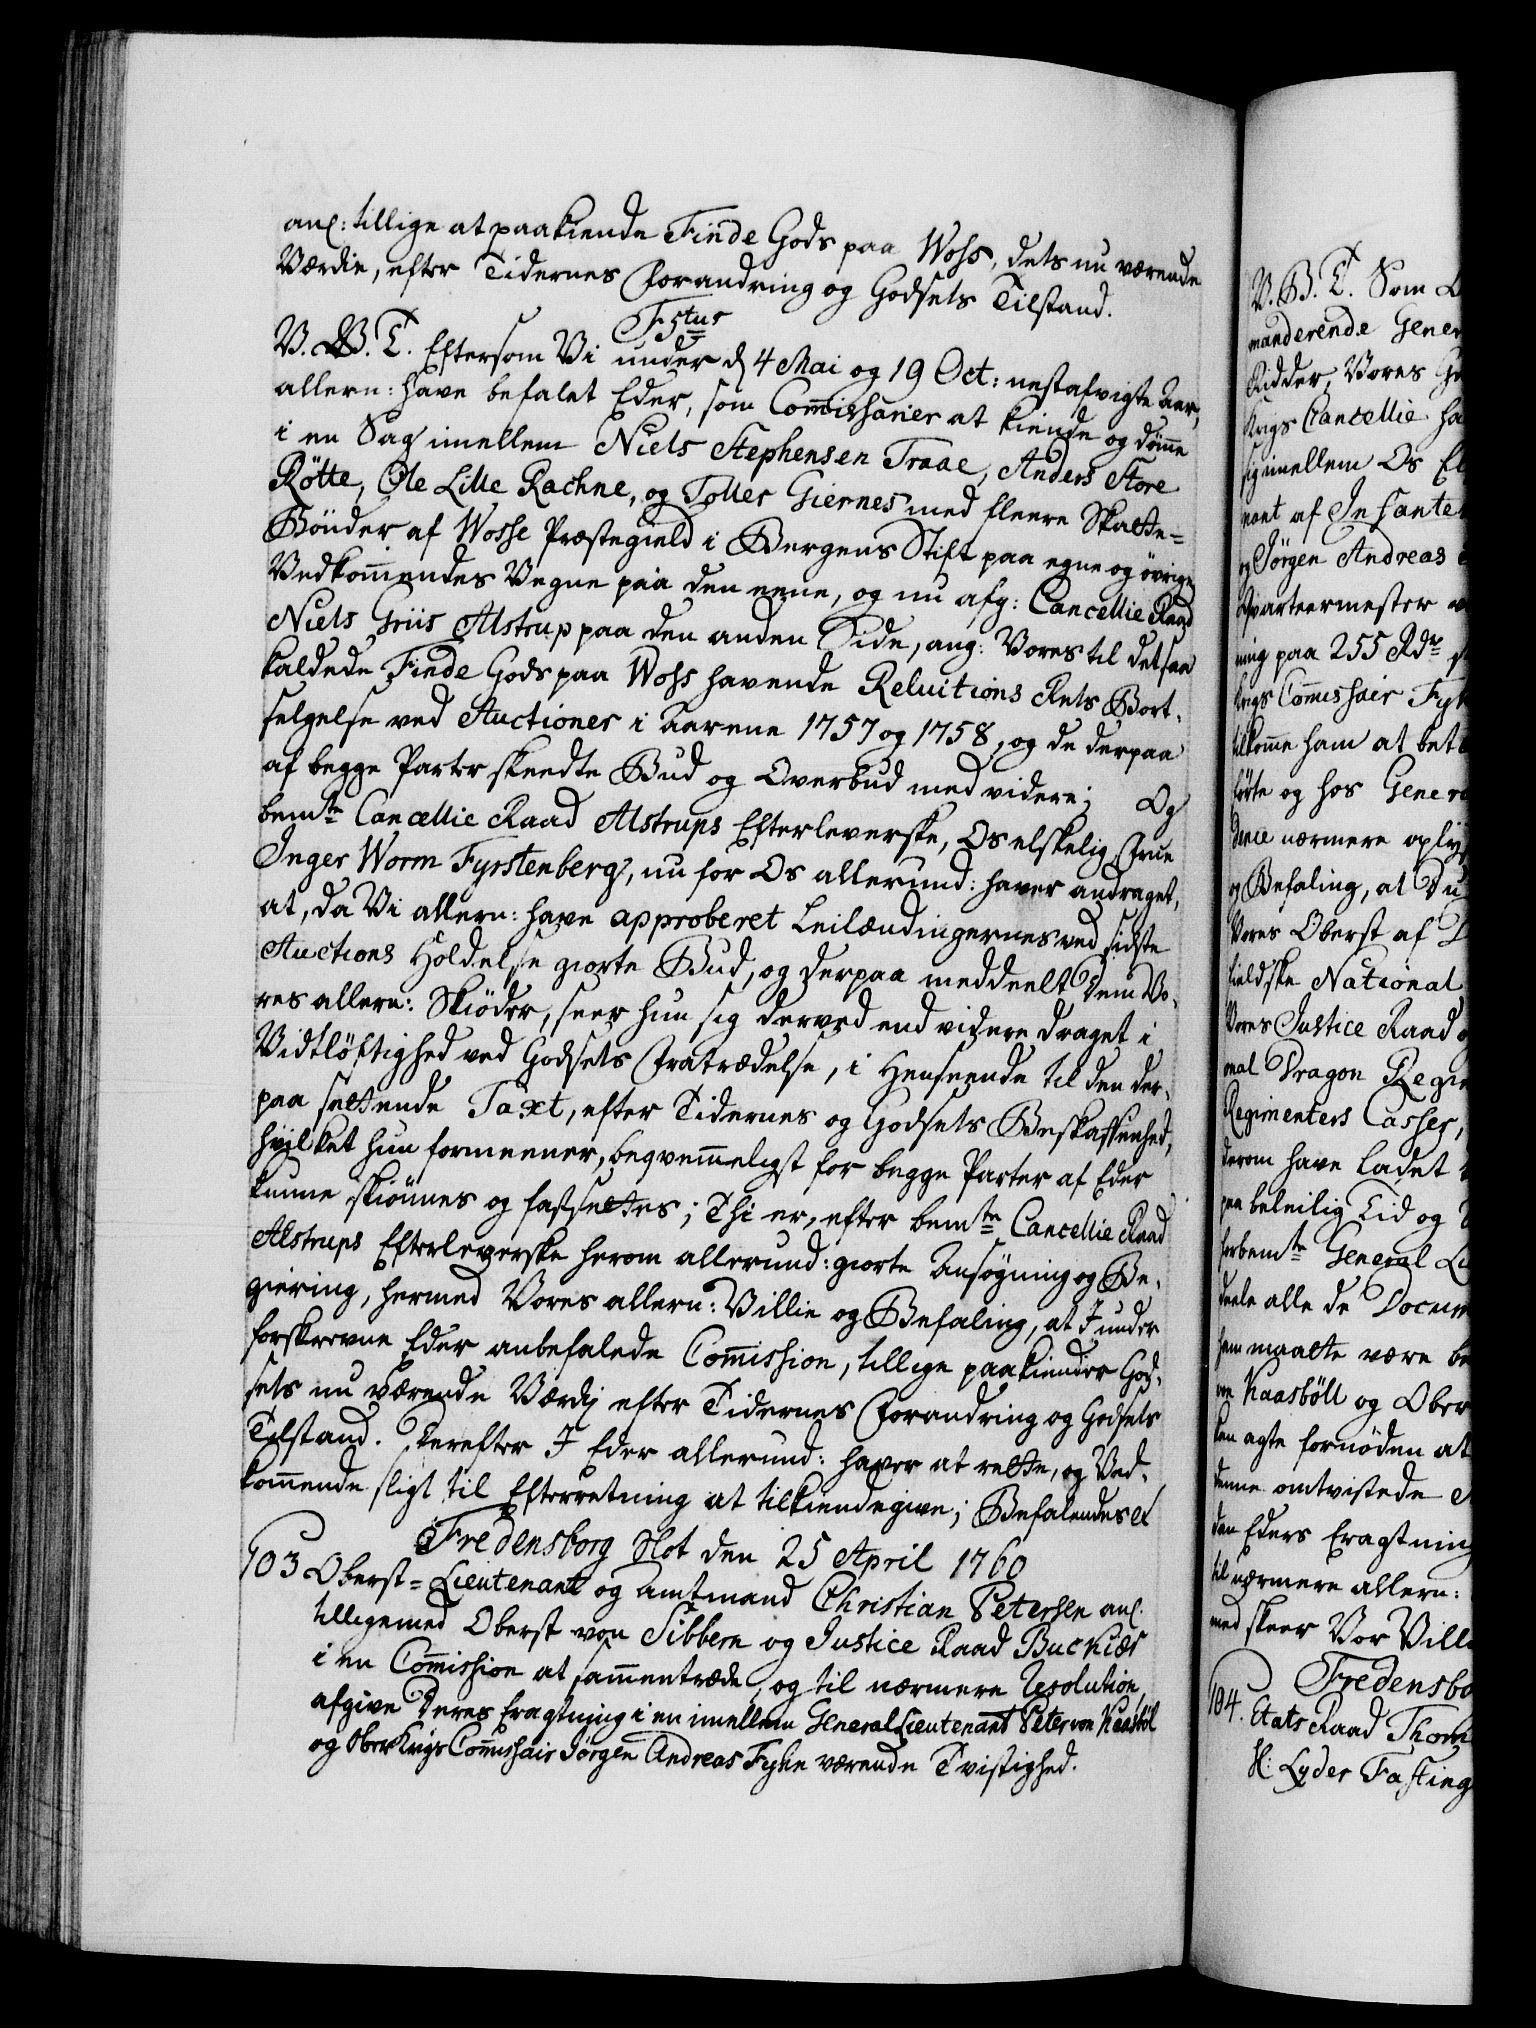 anl: tillige at paakiende Finde Gods paa Woss, dets nu værende
Værdie, efter Tidernes Forandring og Godsets Tilstand.
F5tus
V. G. T. Eftersom Vi under d 4 Mai og 19 Oct: nestafvigte Aar,
allern: have befalet Eder, som Commissarier at kiende og dømme
i en Sag imellem Niels Stephensen Traae, Anders Store
Rötte, Ole Lille Rachne, og Tolles Giernes med fleere Skatte-
Bönder af Wosse Præstegield i Bergens Stift paa egne og övrige
Vedkommendes Vegne paa den eene, og nu afg: Cancellie Raad
Niels Griis Alstrup paa den anden Side, ang: Vores til det saa
kaldede Finde Gods paa Woss havende Reluitions Rets Bort-
selgelse ved Auctioner i Aarene 1757 og 1758, og de derpaa
af begge Parter skeedte Bud og Overbud med videre; Og
bemte Cancellie Raad Alstrups Efterleverske, Os elskelig Frue
Inger Worm Fyrstenberg, nu for Os allerund: haver andraget,
at, da Vi allern: have approberet Leilændingernes ved sidste
Auctions Holdelse giorte Bud, og derpaa meddeelt Dem Vo-
res allern: Skiöder, seer hun sig derved end videre draget i
Vidtlöftighed ved Godsets Fratrædelse, i Henseende til den der-
paa settende Taxt, efter Tidernes og Godsets Beskaffenhed,
hvilket hun formeener, beqvemmeligst for begge Parter af Eder
kunne skiönnes og fastsettes; Thi er, efter bemte Cancellie Raad
Alstrups Efterleverske herom allerund: giorte Ansögning og Be-
giering, hermed Vores allern: Villie og Befaling, at I under
forskrevne Eder anbefalede Commission, tillige paakiender God-
sets nu værende Værdj efter Tidernes Forandring og Godsets
Tilstand. Derefter I Eder allerund: haver at rette, og Ved-
kommende sligt til Efterretning at tilkiendegive; Befalendes &
Fredensborg Slot den 25 April 1760
103 Oberst-Lieutenant og Amtmand Christian Petersen anl.
tilligemed Oberst von Sibbern og Justice Raad Buchiær
i en Commission at sammentræde, og til nærmere Resolution,
afgive Deres Eragtning i en imellem General Lieutenant Peter von Kaasböl
og Ober Krigs Commissair Jörgen Andreas Fyhn værende Tvistighed.
V. G. T. Som
manderende Gener
Ridder, Vores
Krigs Cancellie ha
sig imellem Os El
nant af Infante
og Jörgen Andreas
Qvarteermester
ning paa 255 Rdr
Krigs Commissair Fyh
tilkomme ham at bet
förte og hos Genera
dence nærmere oplys
og Befaling, at Du
Vores Oberst af
fieldske National
Vores Justice Raad o
nal Dragon Regim
Regimenters Casser,
derom have ladet
paa beleilig Tid og
forbemte General Li
deele alle de Docum
ham maatte være be
von Kaasböll og Ober
kan agte fornöden at
denne omtvistede
den Eders Eragtning
til nærmere allern:
med skeer Vor Vill
Fredensbo
104. Etats Raad Thom
H: Lyder Fasting